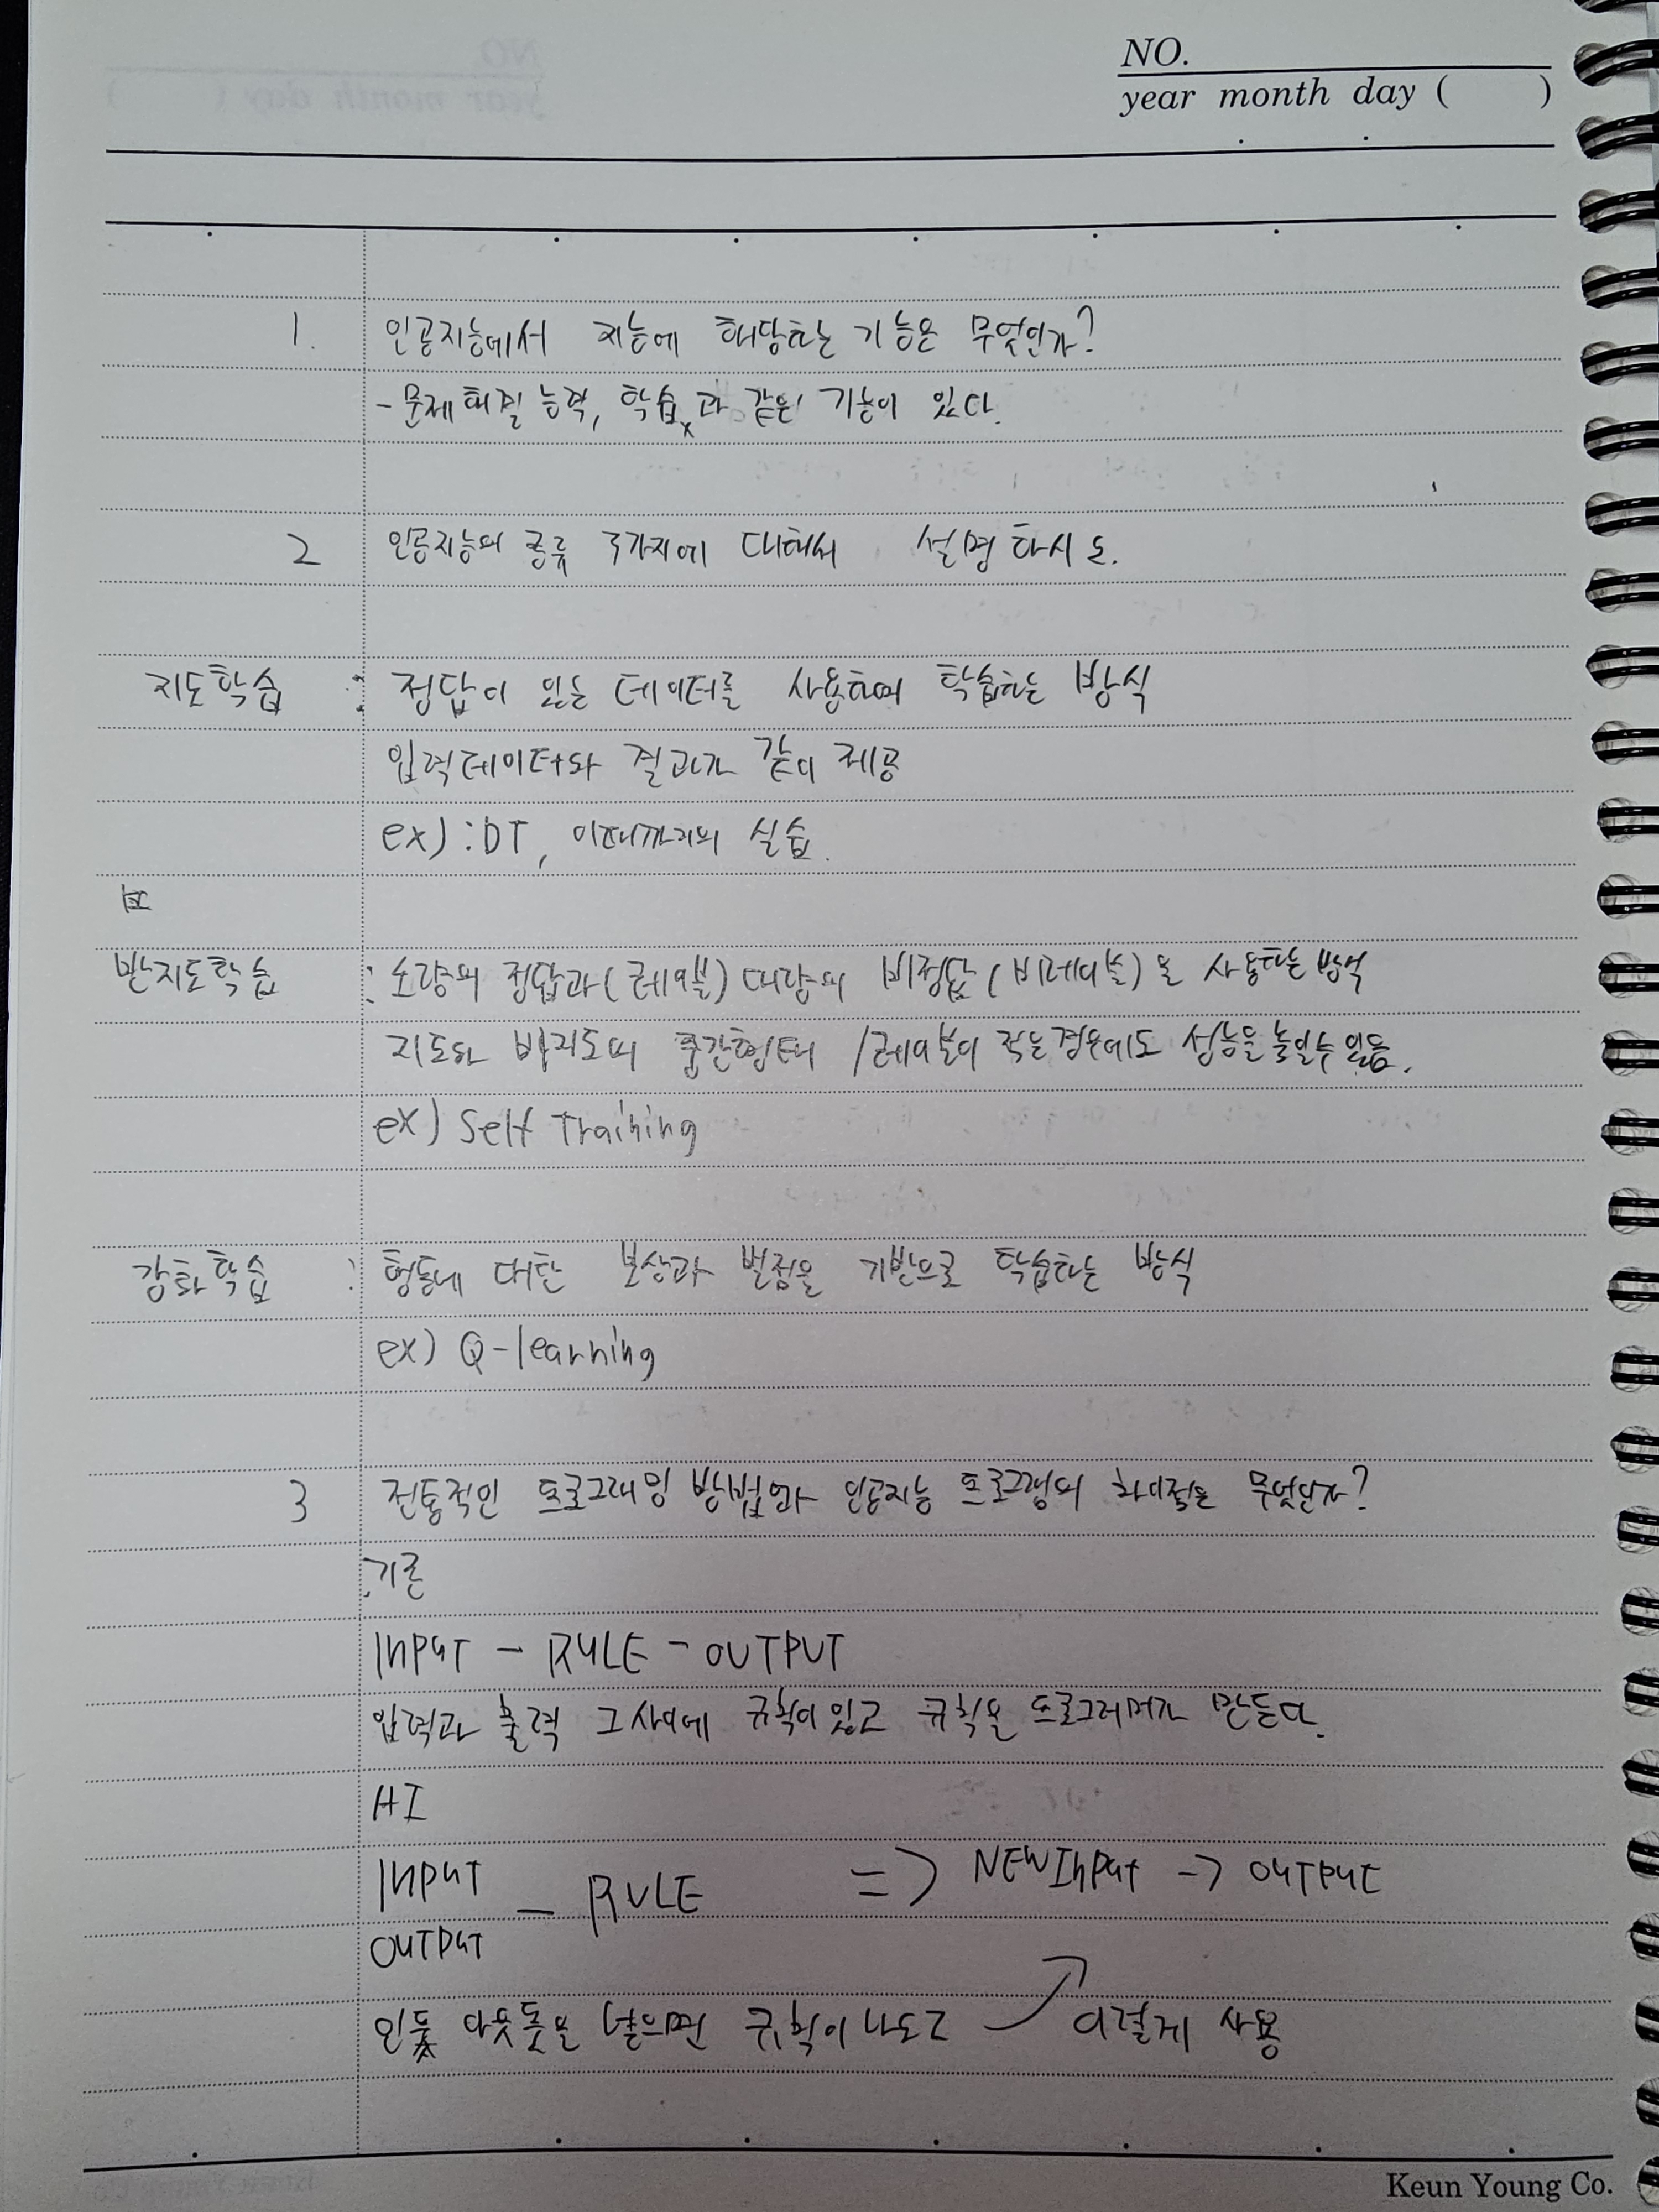 NO.
year month day ( )
1. 인공지능에서 지능에 해당하는 기능은 무엇인가?
- 문제해결 능력, 학습 과 같은 기능이 있다.
2 인공지능의 종류 3가지에 대해서 설명하시오.
지도학습 : 정답이 있는 데이터를 사용하여 학습하는 방식
입력데이터와 결과가 같이 제공
ex) : DT, 이때까지의 실습.
반지도학습 : 소량의 정답과(레이블) 대량의 비정답(비레이블)을 사용하는 방식
지도와 비지도의 중간형태 /레이블이 적은경우에도 성능을 높일수 있음.
ex) Self Training
강화학습 : 행동에 대한 보상과 벌점을 기반으로 학습하는 방식
ex) Q-learning
3 전통적인 프로그래밍 방법과 인공지능 프로그램의 차이점은 무엇인가?
기존
INPUT - RULE - OUTPUT
입력과 출력 그사이에 규칙이 있고 규칙은 프로그래머가 만든다.
AI
INPUT
OUTPUT - RULE => NEW INPUT -> OUTPUT
인풋 아웃풋을 넣으면 규칙이 나오고 이렇게 사용
Keun Young Co.